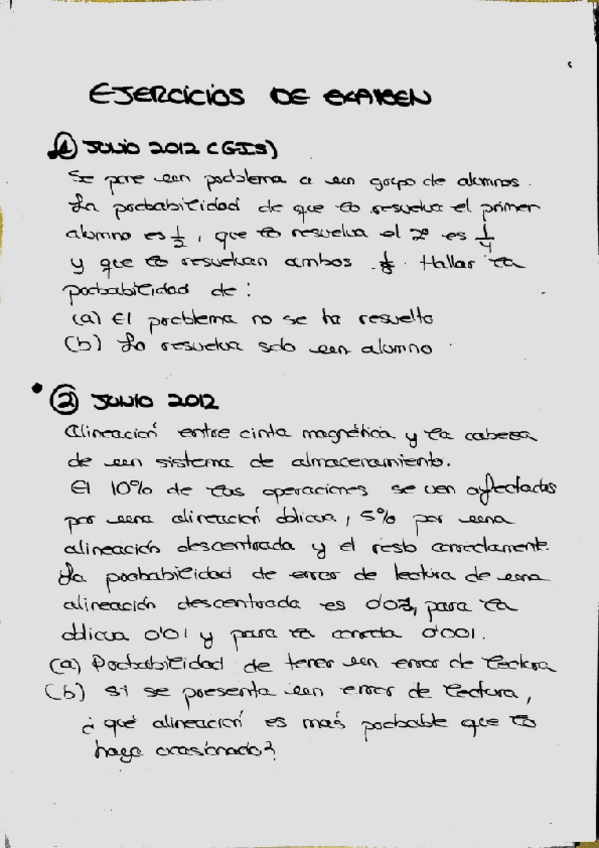 EJERCICIOS DE EXAMEN
① JUNIO 2012 (GIS)
Se pone un problema a un grupo de alumnos.
La probabilidad de que lo resuelva el primer
alumno es 1/2, que lo resuelva el 2º es 1/4
y que lo resuelvan ambos 1/8. Hallar la
probabilidad de:
(a) El problema no se ha resuelto
(b) Lo resuelva solo un alumno.
② JUNIO 2012
Alineación entre cinta magnética y la cabeza
de un sistema de almacenamiento.
El 10% de las operaciones se ven afectadas
por una alineación oblicua, 5% por una
alineación descentrada y el resto correctamente.
La probabilidad de error de lectura de una
alineación descentrada es para la
oblicua 0'01 y para la correcta 0'001.
(a) Probabilidad de tener un error de lectura
(b) Si se presenta un error de lectura,
¿qué alineación es más probable que lo
haya ocasionado?